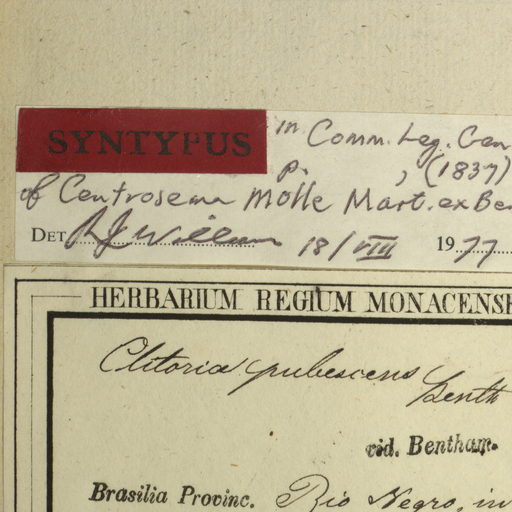 SYNTYPUS in Comm. Leg. Gen
p. , (1837)
of Centrosema molle Mart. ex Ben
DET. RJ Williams 18/VIII 1977
HERBARIUM REGIUM MONACENSE
Clitoria pubescens Benth
vid. Bentham.
Brasilia Provinc. Rio Negro, in